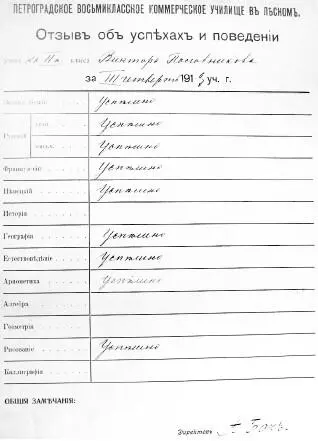 ПЕТРОГРАДСКОЕ ВОСЬМИКЛАССНОЕ КОММЕРЧЕСКОЕ УЧИЛИЩЕ ВЪ ЛѢСНОМЪ.
Отзывъ объ успѣхахъ и поведеніи
класса Виктора
за III четверть 191 уч. г.
Успѣшно
Русскій Успѣшно
Успѣшно
Успѣшно
Нѣмецкій Успѣшно
Исторія
Географія Успѣшно
Естествовѣдѣніе Успѣшно
Ариѳметика Успѣшно
Алгебра
Геометрія
Рисованіе Успѣшно
Каллиграфія
ОБЩІЯ ЗАМѢЧАНІЯ:
Директоръ